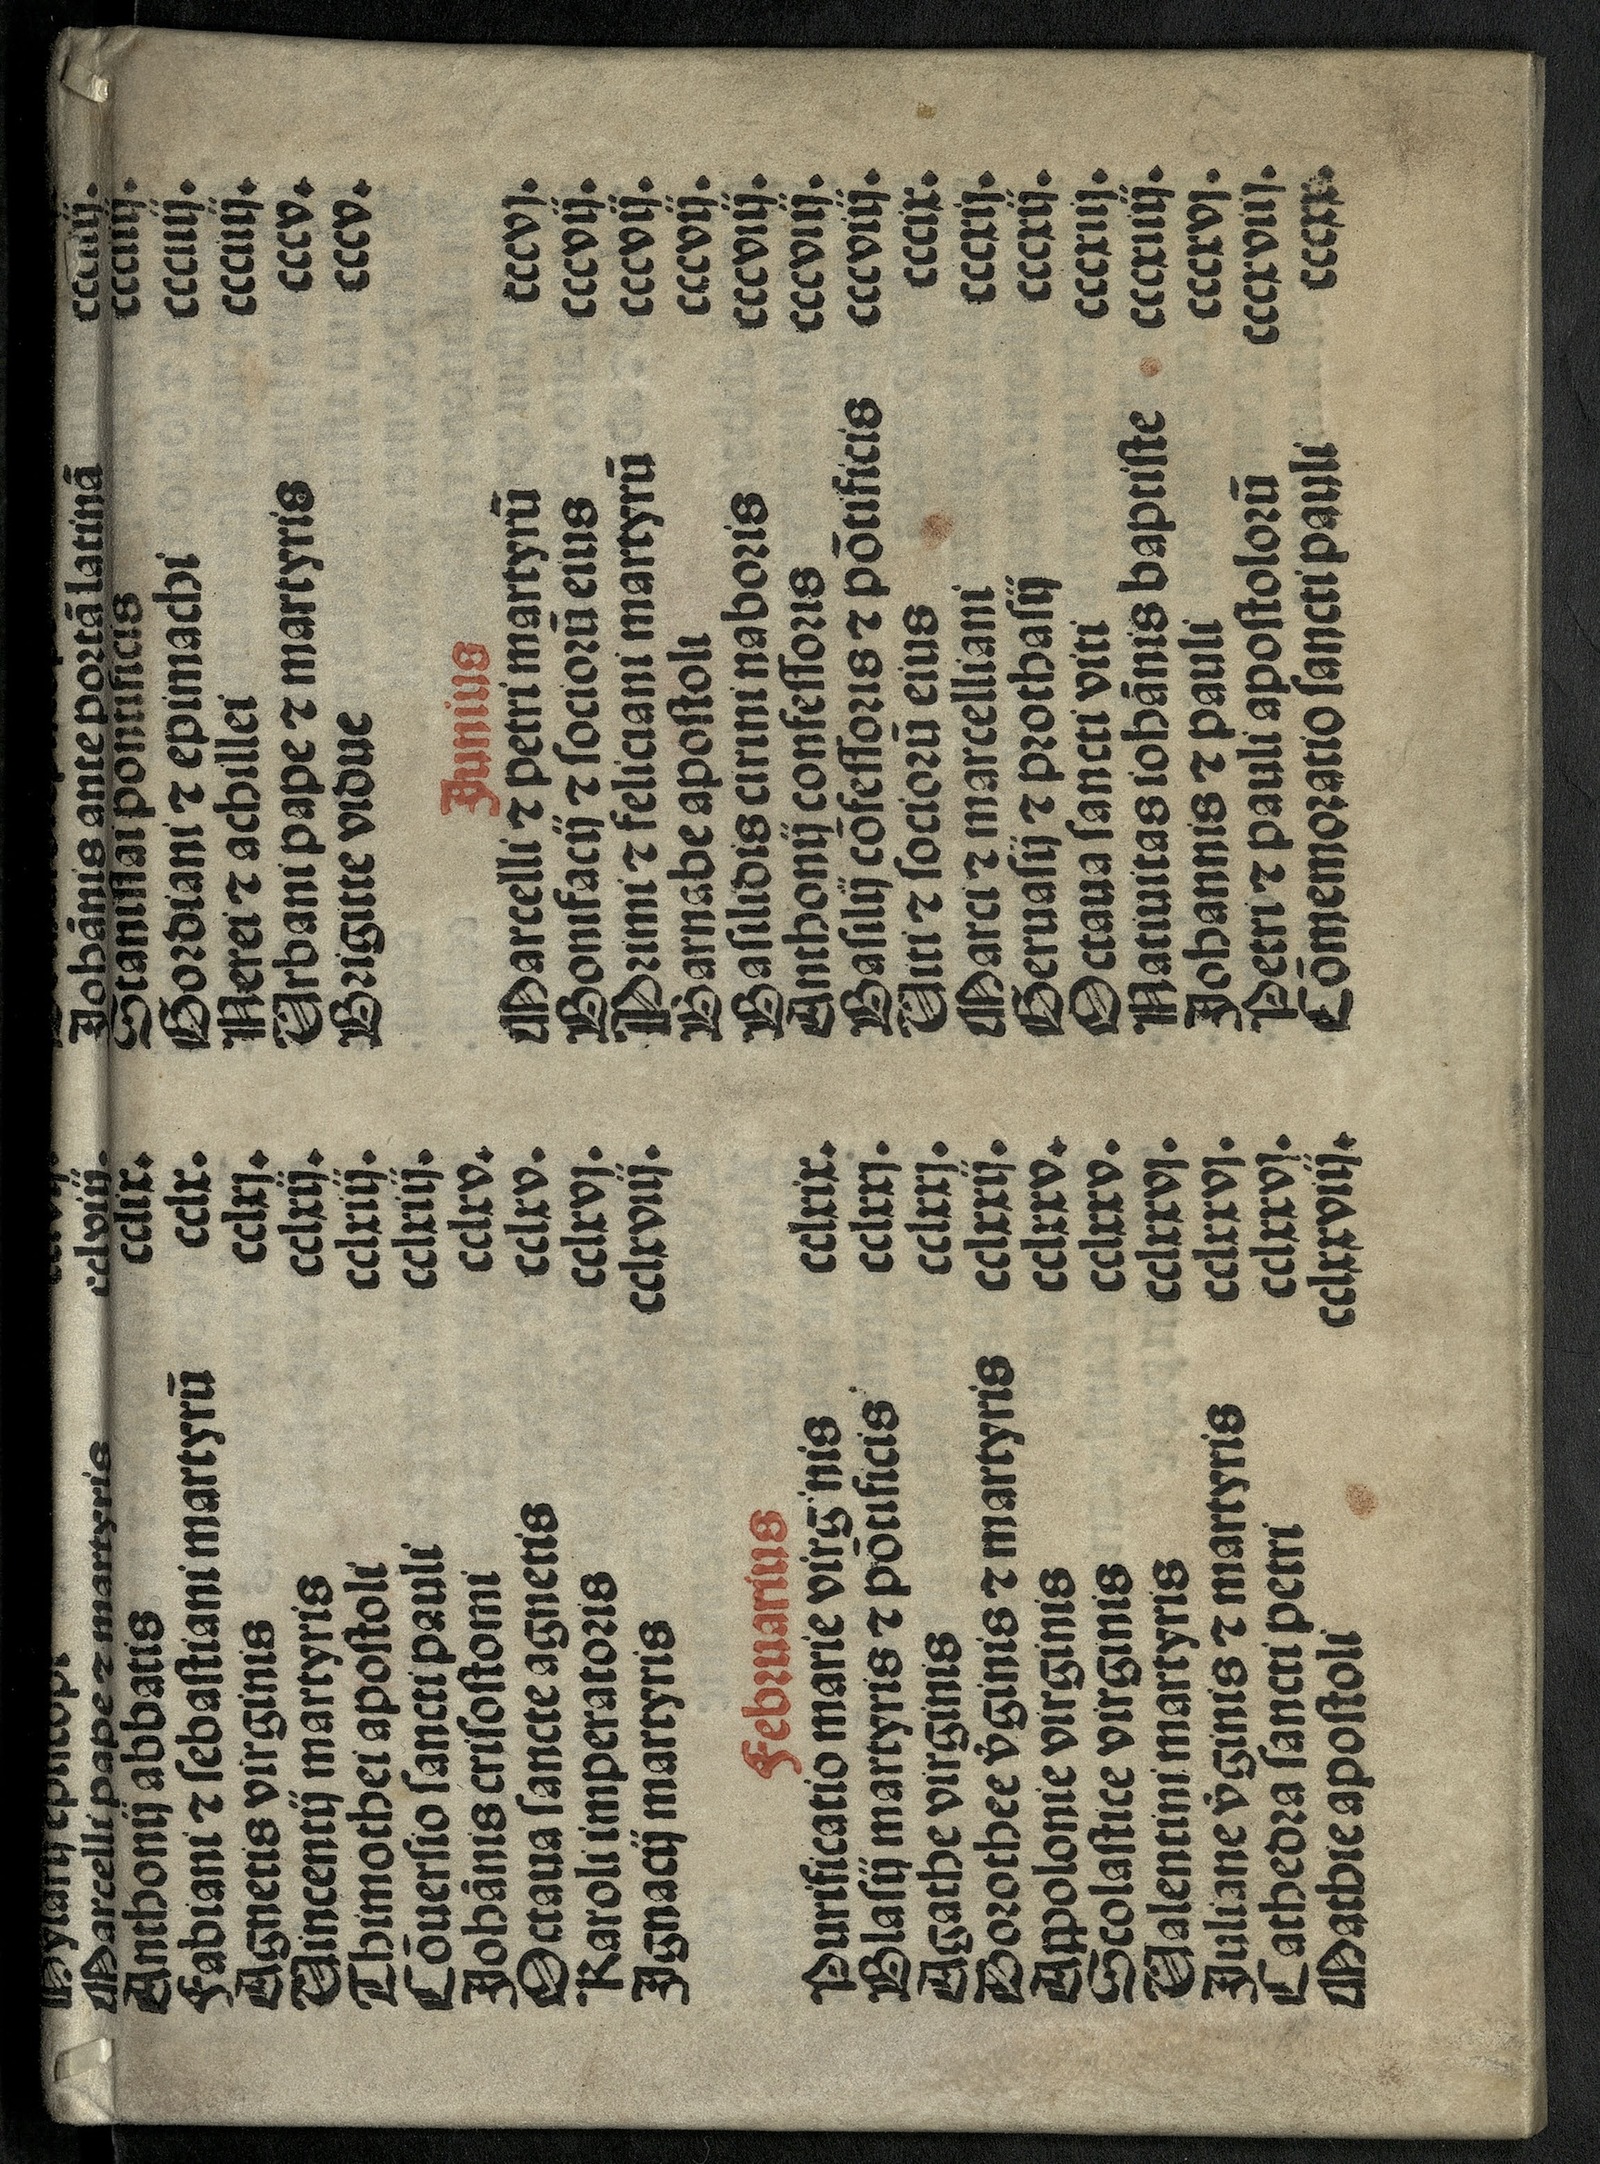 Marcelli pape ⁊ martyris cclviij.
Anthonij abbatis cclix.
Fabiani ⁊ sebastiani martyrū cclx.
Agnetis virginis cclxj.
Vincentij martyris cclxij.
Thimothei apostoli cclxiij.
Cōuersio sancti pauli cclxiij.
Johānis crisostomi cclxv.
Octaua sancte agnetis cclxv.
Karoli imperatoris cclxvj.
Ignacij martyris cclxvij.
Februarius
Purificatio marie virginis cclxix.
Blasij martyris ⁊ pōtificis cclxxj.
Agathe virginis cclxxj.
Dorothee v̄ginis ⁊ martyris cclxxij.
Appolonie virginis cclxxv.
Scolastice virginis cclxxv.
Valentini martyris cclxxvj.
Juliane v̄ginis ⁊ martyris cclxxvj.
Cathedra sancti petri cclxxvj.
Mathie apostoli cclxxvij.
Johānis ante portā latinā ccciiij.
Stanislai pontificis ccciiij.
Gordiani ⁊ epimachi ccciiij.
Nerei ⁊ achillei ccciiij.
Vrbani pape ⁊ martyris cccv.
Brigitte vidue cccv.
Junius
Marcelli ⁊ petri martyrū cccvj.
Bonifacij ⁊ sociorū eius cccvij.
Primi ⁊ feliciani martyrū cccvij.
Barnabe apostoli cccvij.
Basilidis cirini naboris cccviij.
Anthonij confessoris cccviij.
Basilij cōfessoris ⁊ pōtificis cccviij.
Viti ⁊ sociorū eius cccix.
Marci ⁊ marcelliani cccxij.
Geruasij ⁊ prothasij cccxij.
Octaua sancti viti cccxiij.
Natiuitas iohānis baptiste cccxiiij.
Johannis ⁊ pauli cccxvj.
Petri ⁊ pauli apostolorū cccxviij.
Cōmemoratio sancti pauli cccxx.